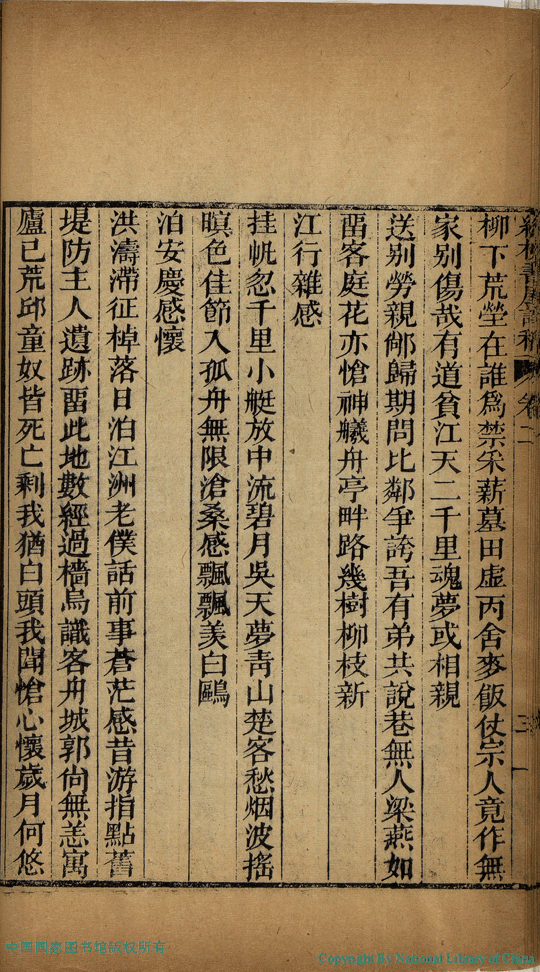 柳下荒塋在誰爲禁采薪墓田虛丙舍麥飯仗宗人竟作無
家别傷哉有道貧江天二千里魂夢或相親
送别勞親郵歸期問比鄰爭誇吾有弟共說巷無人梁燕如
畱客庭花亦愴神艤舟亭畔路幾樹柳枝新
江行雜感
挂帆忽千里小艇放中流碧月吳天夢靑山楚客愁烟波搖
暝色佳節入孤舟無限滄桑感飄飄羨白鷗
泊安慶感懷
洪濤滯征棹落日泊江洲老僕話前事蒼茫感昔游指點舊
堤防主人遺跡畱此地數經過檣烏識客舟城郭尙無恙寓
廬已荒邱童奴皆死亡剩我猶白頭我聞愴心懷歲月何悠
卷二
三
中国国家图书馆版权所有
Copyright By National Library of China